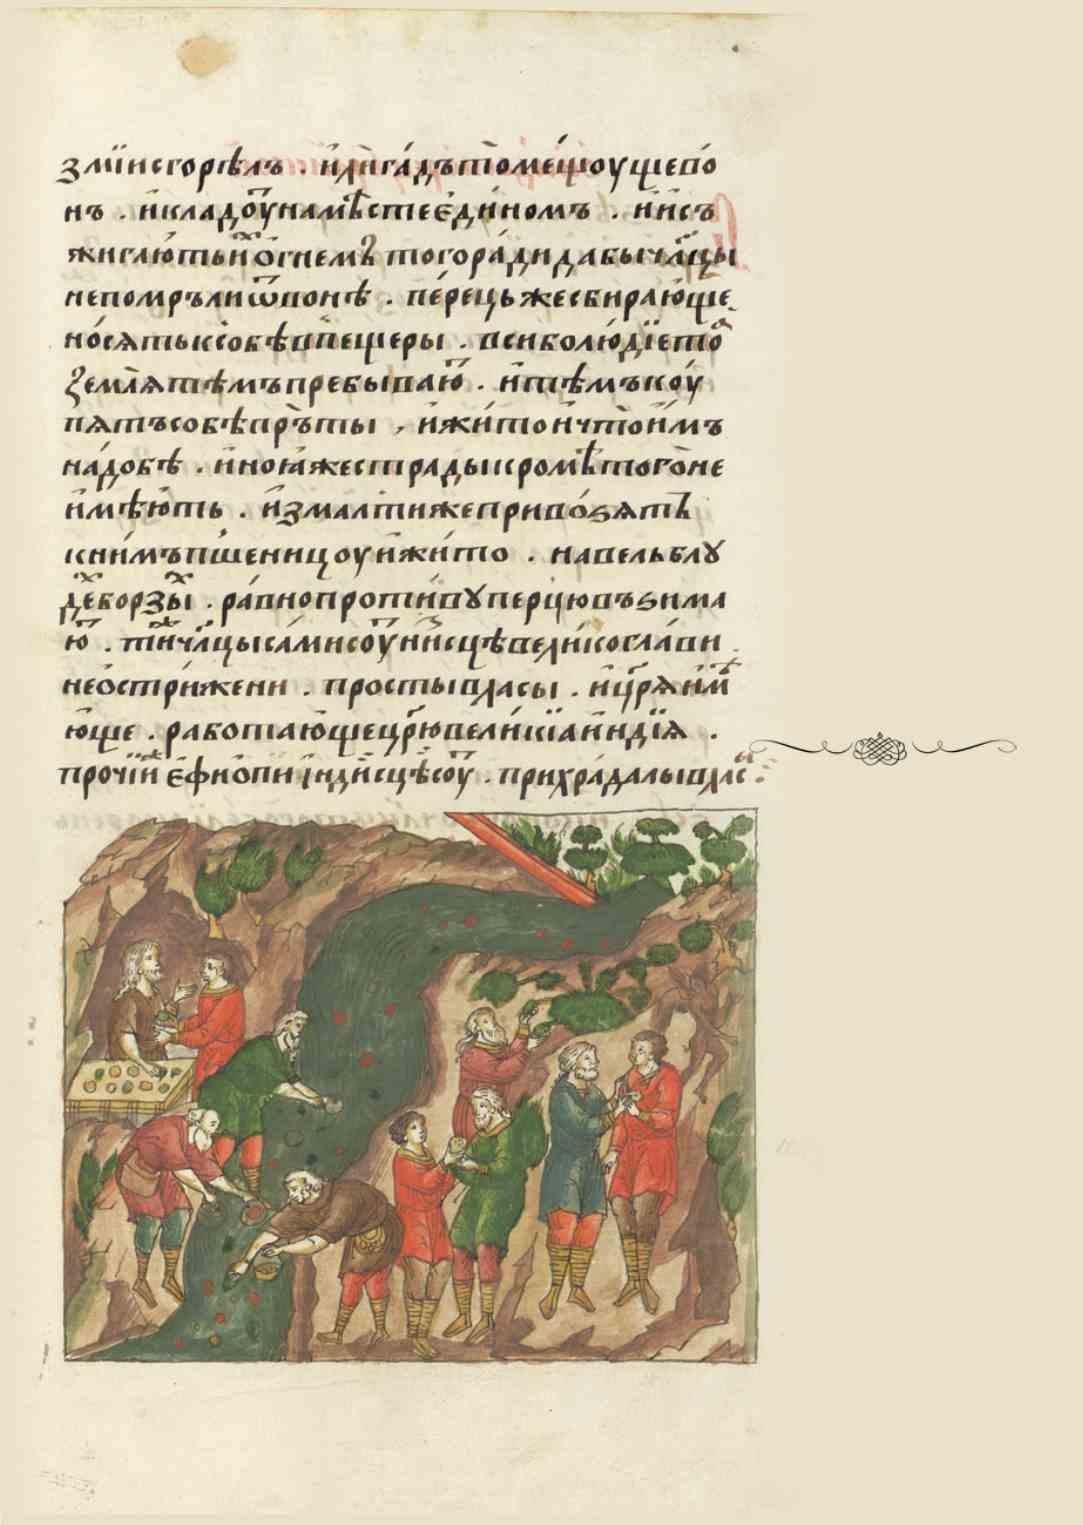 зміи сгорѣлъ . и дѣгадътомещоущевѡ
нъ . и кладоу на мѣсте единомъ . и исъ
жигаютъ и огнемъ того ради дабы члцы
не помръли ѿ вонѣ . перецьже сбирающе
носять к собѣ в пещеры . вси бо людіе то
земля тѣмъ пребываю . и тѣмъ коу
пятъ собѣ пръты , и жито и что имъ
надобѣ . и ноя же страды кромѣ того не
имѣють . измалтиже привоѕять
к нимъ пшеницоу и жито . на вельблу
де борзы . равно противу перцю въѕима
ю . ти члцы сами соу нисцѣ великоглави
не острижени . просты власы . и цря им
юще . работающе црю великіа индія .
прочіи ефиопи індисцѣ соу . прихрадалы влас